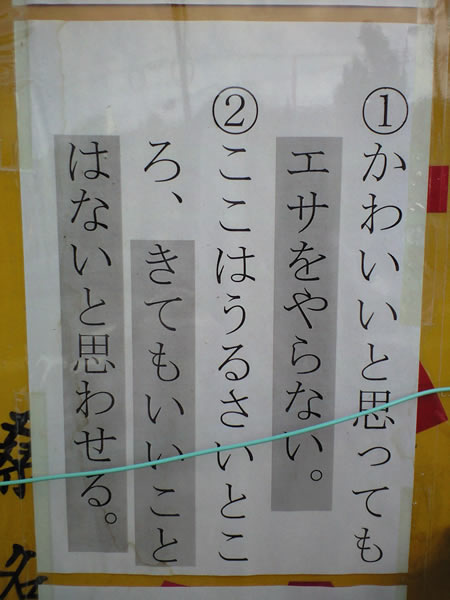 ①かわいいと思っても
エサをやらない。
②ここはうるさいとこ
ろ、きてもいいこと
はないと思わせる。